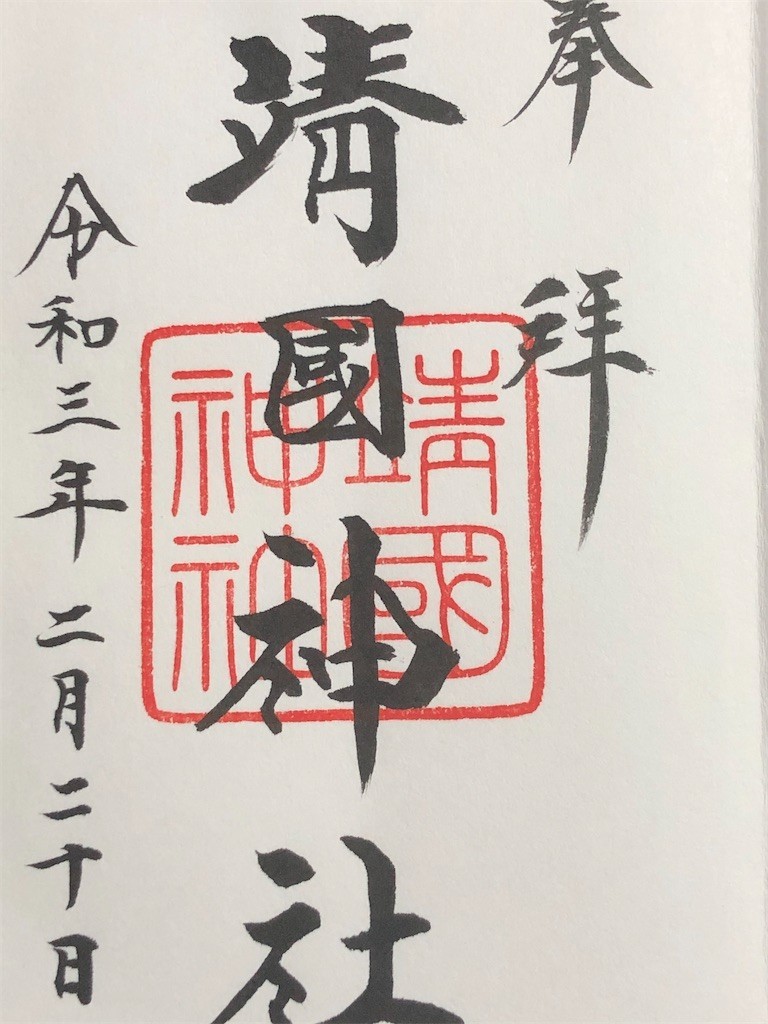 奉拝
靖國神社
令和三年二月二十日
靖國
神